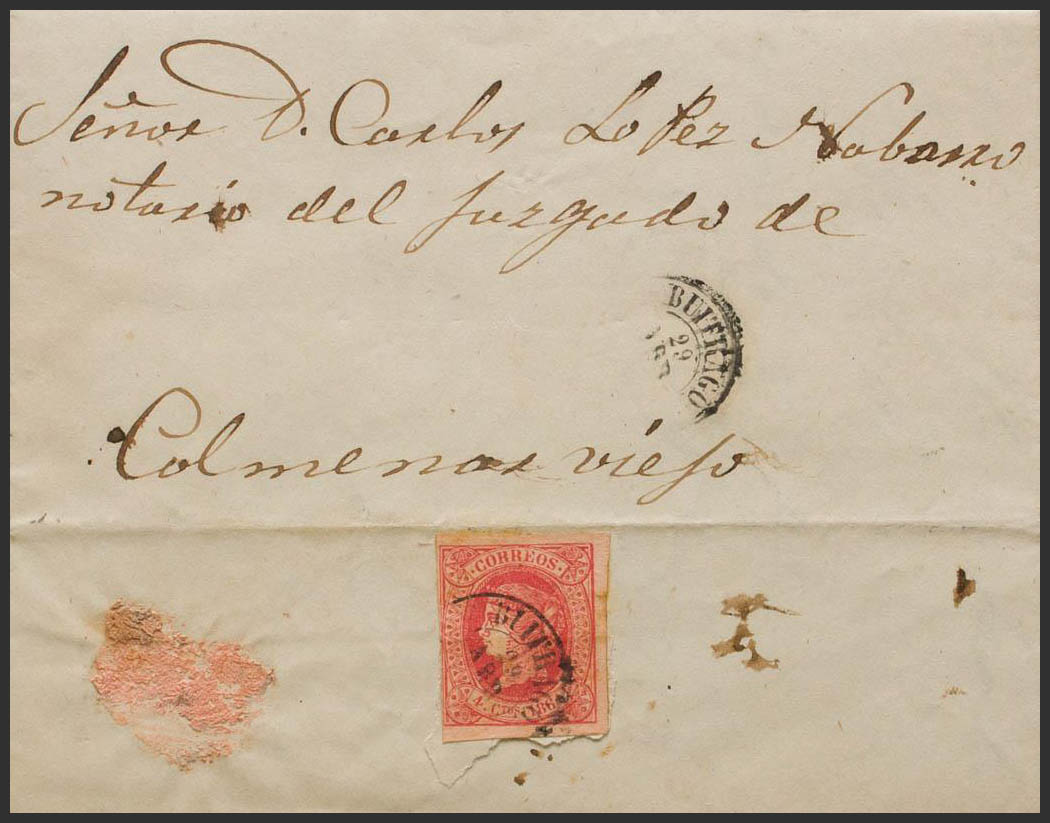 Señor D. Carlos Lopez Nabarro
notario del juzgado de
BUITRAGO
29
Colmenar viejo
CORREOS
BUITRAGO
29
ABR
4. Cos